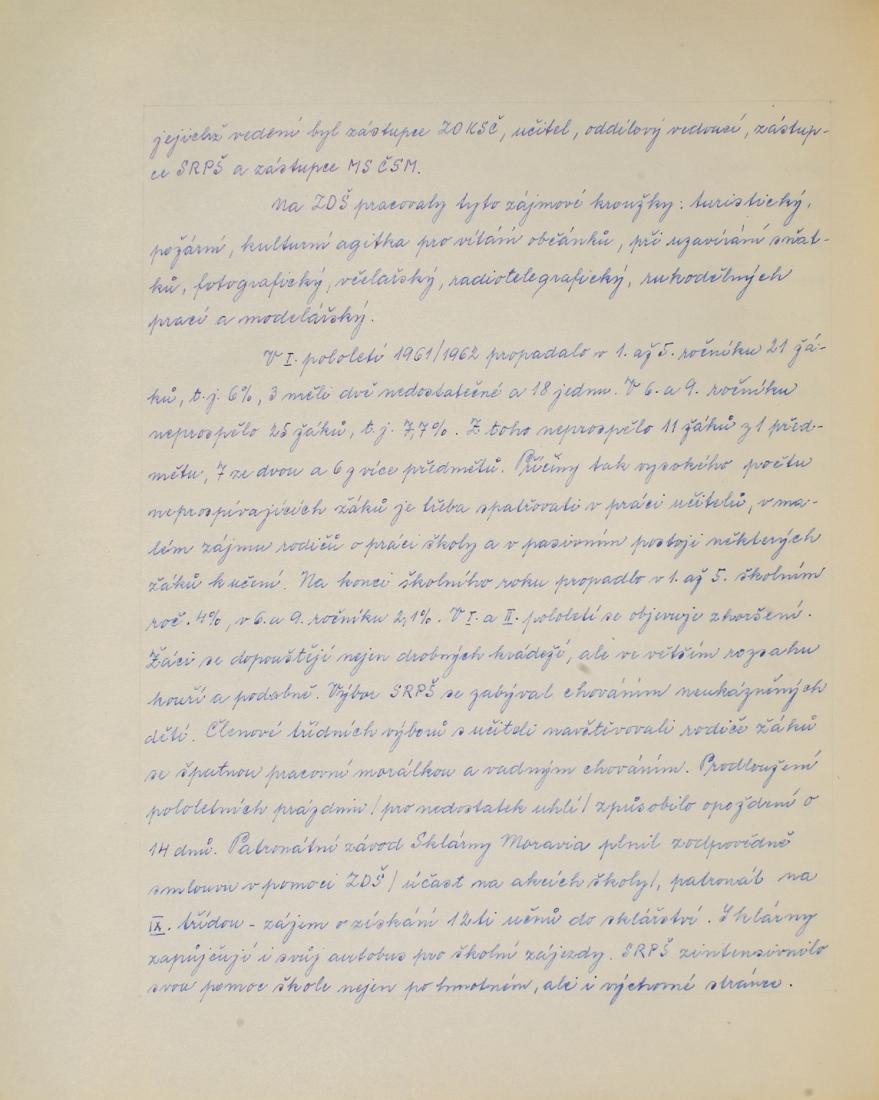 jejichž vedení byl zástupce ZO KSČ, učitel, oddílový vedoucí, zástup-
ce SRPŠ a zástupce MS ČSM.
Na ZDŠ pracovaly tyto zájmové kroužky: turistický,
požární, kulturní agitka pro vítání občánků, při uzavírání sňat-
ků, fotografický, včelařský, radiotelegrafický, rukodělných
prací a modelářský.
V I. pololetí 1961/1962 propadalo v 1. až 5. ročníku 21 žá-
ků, t.j. 6%, 3 měli dvě nedostatečné a 18 jednu. V 6. a 9. ročníku
neprospělo 25 žáků, t.j. 7,7%. Z toho neprospělo 11 žáků z 1 před-
mětu, 7 ze dvou a 6 z více předmětů. Příčiny tak vysokého počtu
neprospívajících žáků je třeba spatřovati v práci učitelů, v ma-
lém zájmu rodičů o práci školy a v pasivním postoji některých
žáků k učení. Na konci školního roku propadlo v 1. až 5. školním
roč. 4%, v 6. a 9. ročníku 2,1%. V I. a II. pololetí se objevuje zhoršení.
Žáci se dopouštějí nejen drobných krádeží, ale ve větším rozsahu
kouří a podobně. Výbor SRPŠ se zabýval chováním neukázněných
dětí. Členové třídních výborů s učiteli navštěvovali rodiče žáků
se špatnou pracovní morálkou a vadným chováním. Prodloužení
pololetních prázdnin / pro nedostatek uhlí / způsobilo opoždění o
14 dnů. Patronátní závod Sklárny Moravia plnil zodpovědně
smlouvu v pomoci ZDŠ / účast na akcích školy /, patronát na
IX. třídou - zájem o získání 12ti učňů do sklářství. Sklárny
zapůjčují i svůj autobus pro školní zájezdy. SRPŠ zintensivnilo
svou pomoc škole nejen po hmotném, ale i výchovné stránce.